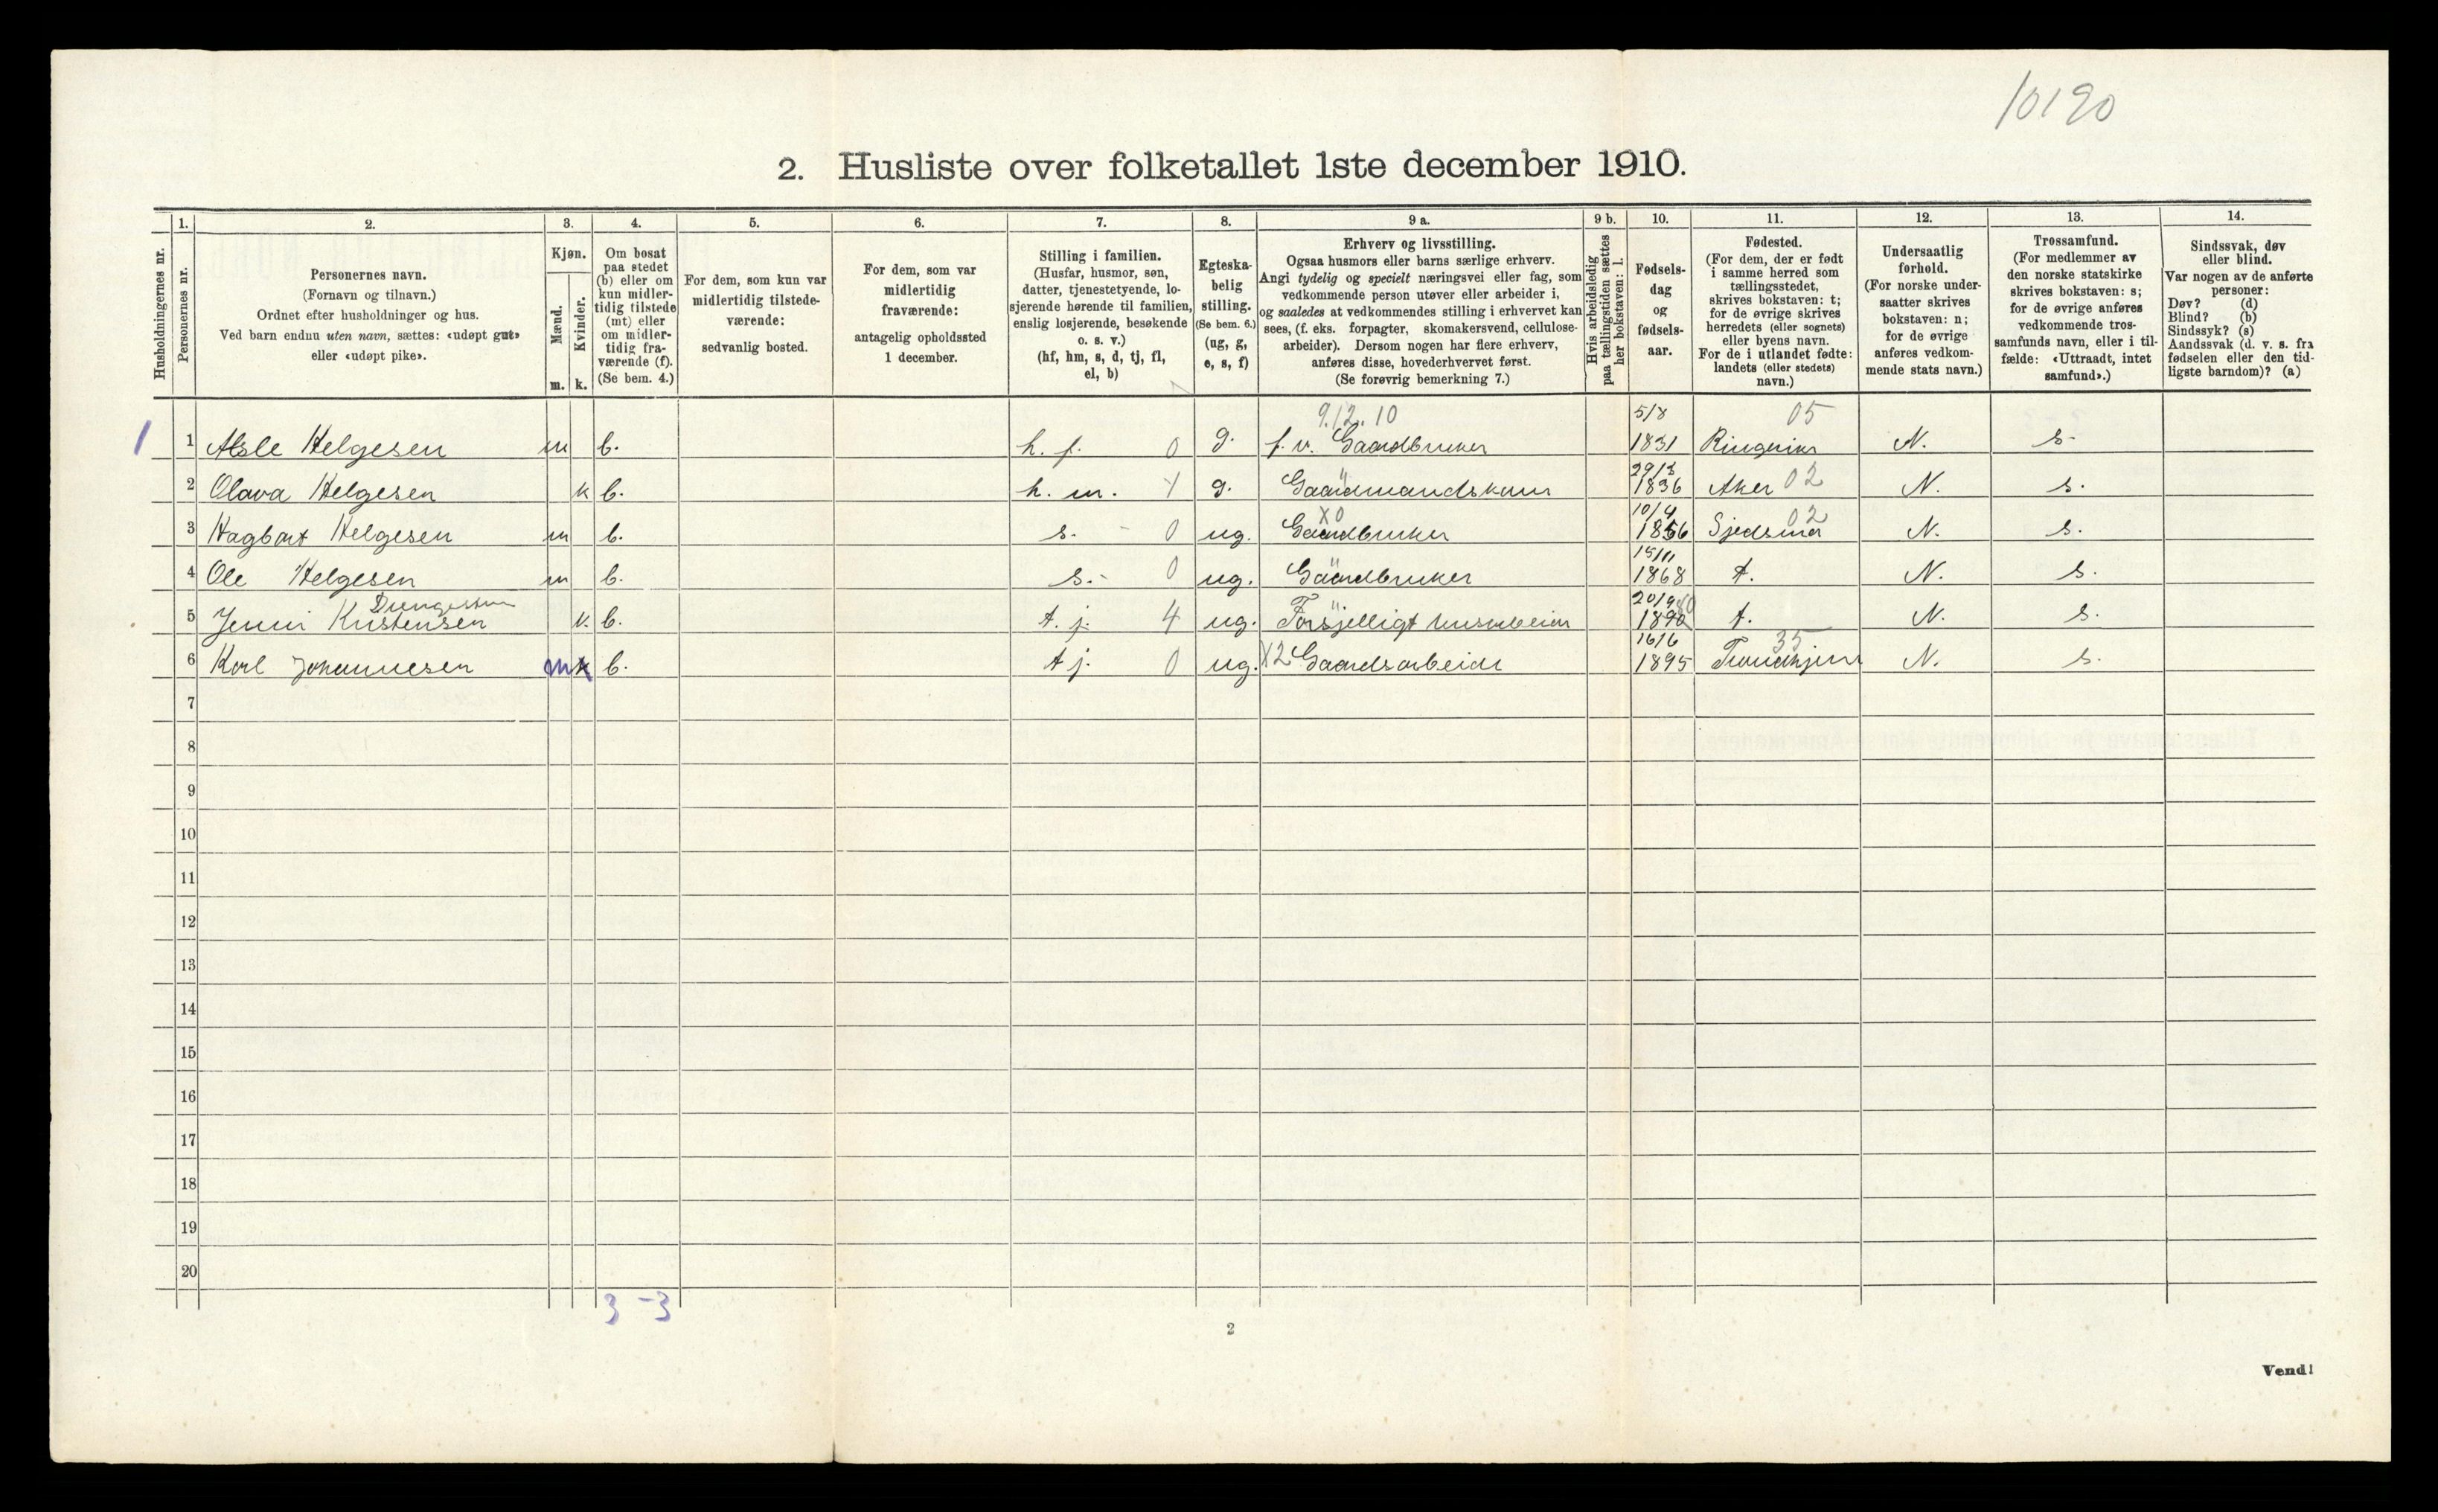 10190
2. Husliste over folketallet 1ste december 1910.
Husholdningernes nr.
1.
Personernes nr.
2.
Personernes navn.
(Fornavn og tilnavn.)
Ordnet efter husholdninger og hus.
Ved barn endnu uten navn, sættes: «udøpt gut»
eller «udøpt pike».
3.
Kjøn.
Mænd.
Kvinder.
m. k.
4.
Om bosat
paa stedet
(b) eller om
kun midler-
tidig tilstede
(mt) eller
om midler-
tidig fra-
værende (f).
(Se bem. 4.)
5.
For dem, som kun var
midlertidig tilstede-
værende:
sedvanlig bosted.
6.
For dem, som var
midlertidig
fraværende:
antagelig opholdssted
1 december.
7.
Stilling i familien.
(Husfar, husmor, søn,
datter, tjenestetyende, lo-
sjerende hørende til familien,
enslig losjerende, besøkende
o. s. v.)
(hf, hm, s, d, tj, fl,
el, b)
8.
Egteska-
belig
stilling.
(Se bem. 6.)
(ug, g,
e, s, f)
9 a.
Erhverv og livsstilling.
Ogsaa husmors eller barns særlige erhverv.
Angi tydelig og specielt næringsvei eller fag, som
vedkommende person utøver eller arbeider i,
og saaledes at vedkommendes stilling i erhvervet kan
sees, (f. eks. forpagter, skomakersvend, cellulose-
arbeider). Dersom nogen har flere erhverv,
anføres disse, hovederhvervet først.
(Se forøvrig bemerkning 7.)
9 b.
Hvis arbeidsledig
paa tællingstiden sættes
her bokstaven: l.
10.
Fødsels-
dag
og
fødsels-
aar.
11.
Fødested.
(For dem, der er født
i samme herred som
tællingsstedet,
skrives bokstaven: t;
for de øvrige skrives
herredets (eller sognets)
eller byens navn.
For de i utlandet fødte:
landets (eller stedets)
navn.)
12.
Undersaatlig
forhold.
(For norske under-
saatter skrives
bokstaven: n;
for de øvrige
anføres vedkom-
mende stats navn.)
13.
Trossamfund.
(For medlemmer av
den norske statskirke
skrives bokstaven: s;
for de øvrige anføres
vedkommende tros-
samfunds navn, eller i til-
fælde: «Uttraadt, intet
samfund».)
14.
Sindssvak, døv
eller blind.
Var nogen av de anførte
personer:
Døv? (d)
Blind? (b)
Sindssyk? (s)
Aandssvak (d. v. s. fra
fødselen eller den tid-
ligste barndom)? (a)
9.12.10 5/8 05
1 1 Asle Helgesen m b. h. f. 0 g. f. v. Gaardbruker 1831 Ringerike N. s.
2 Olava Helgesen k b. h. m. 1 g. Gaardmandskone 1836 Aker 02 N. s.
X0 10/4 02
3 Hagbart Helgesen m b. s. 0 ug. Gaardbruker 1866 N. s.
15/11
4 Ole Helgesen m b. s. 0 ug. Gaardbruker 1868 t. N. s.
20/9
5 Jenni Kristensen k. b. t. j. 4 ug. Forsjelligt husarbeide t. N. s.
16/6 35
6 Karl Johannesen m k b. t j. 0 ug. X2 Gaardsarbeide 1895 Trondhjem N. s.
7
8
9
10
11
12
13
14
15
16
17
18
19
20
3 - 3
2
Vend!